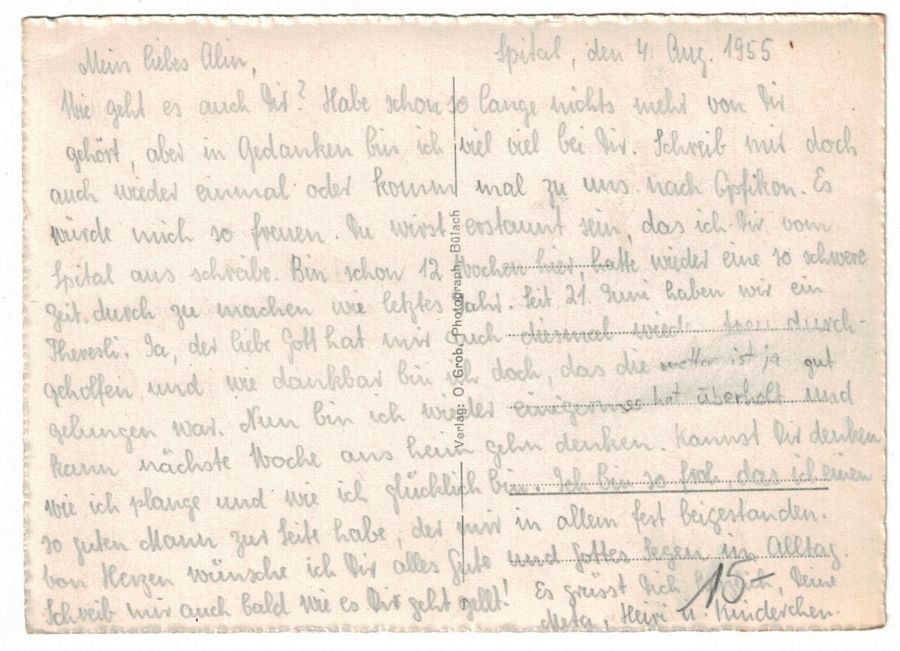 Spital, den 4. Aug. 1955
Mein liebes Alin,
Wie geht es auch Dir? Habe schon so lange nichts mehr von Dir
gehört, aber in Gedanken bin ich viel viel bei Dir. Schreib mir doch
auch wieder einmal oder komm mal zu uns nach Opfikon. Es
würde mich so freuen. Du wirst erstaunt sein, das ich Dir vom
Spital aus schreibe. Bin schon 12 Wochen hier, hatte wieder eine so schwere
Zeit durch zu machen wie letztes Jahr. Seit 21. Juni haben wir ein
Theresli. Ja, der liebe Gott hat mir auch diesmal wieder durch-
geholfen und wie dankbar bin ich doch, das die ist ja gut
gelungen war. Nun bin ich wieder hat überholt und
kann nächste Woche ans heim gehn denken. Kannst Dir denken
wie ich plange und wie ich glücklich bin. Ich bin so froh, das ich einen
so guten Mann zur Seite habe, der mir in allem fest beigestanden.
Von Herzen wünsche ich Dir alles Gute und Gottes Segen im Alltag.
Schreib mir auch bald wie es Dir geht gellt! Es grüsst Dich Deine
Meta, Heiri u. Kinderchen.
15.-
Verlag: O. Grob, Photograph, Bülach